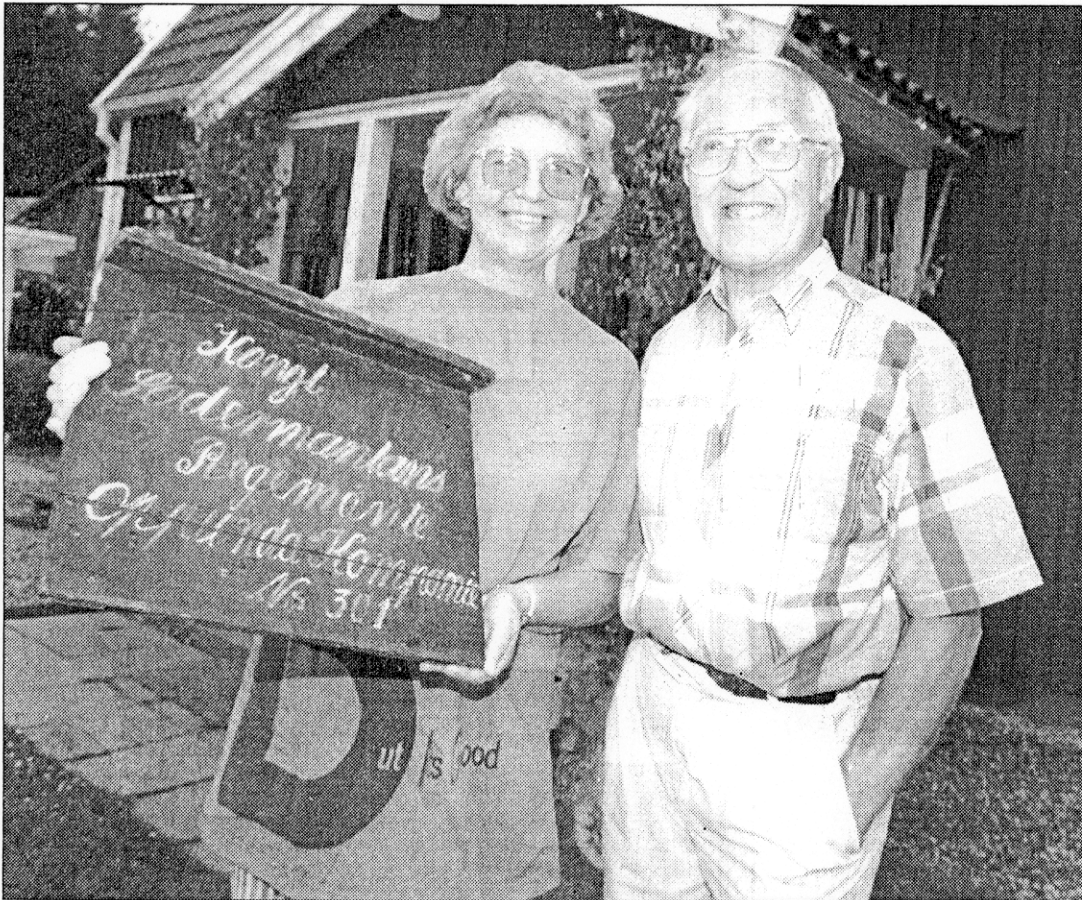 Kongl
Södermanlans
Regimante
Oppunda Kompanie
No 301
ut Is Good